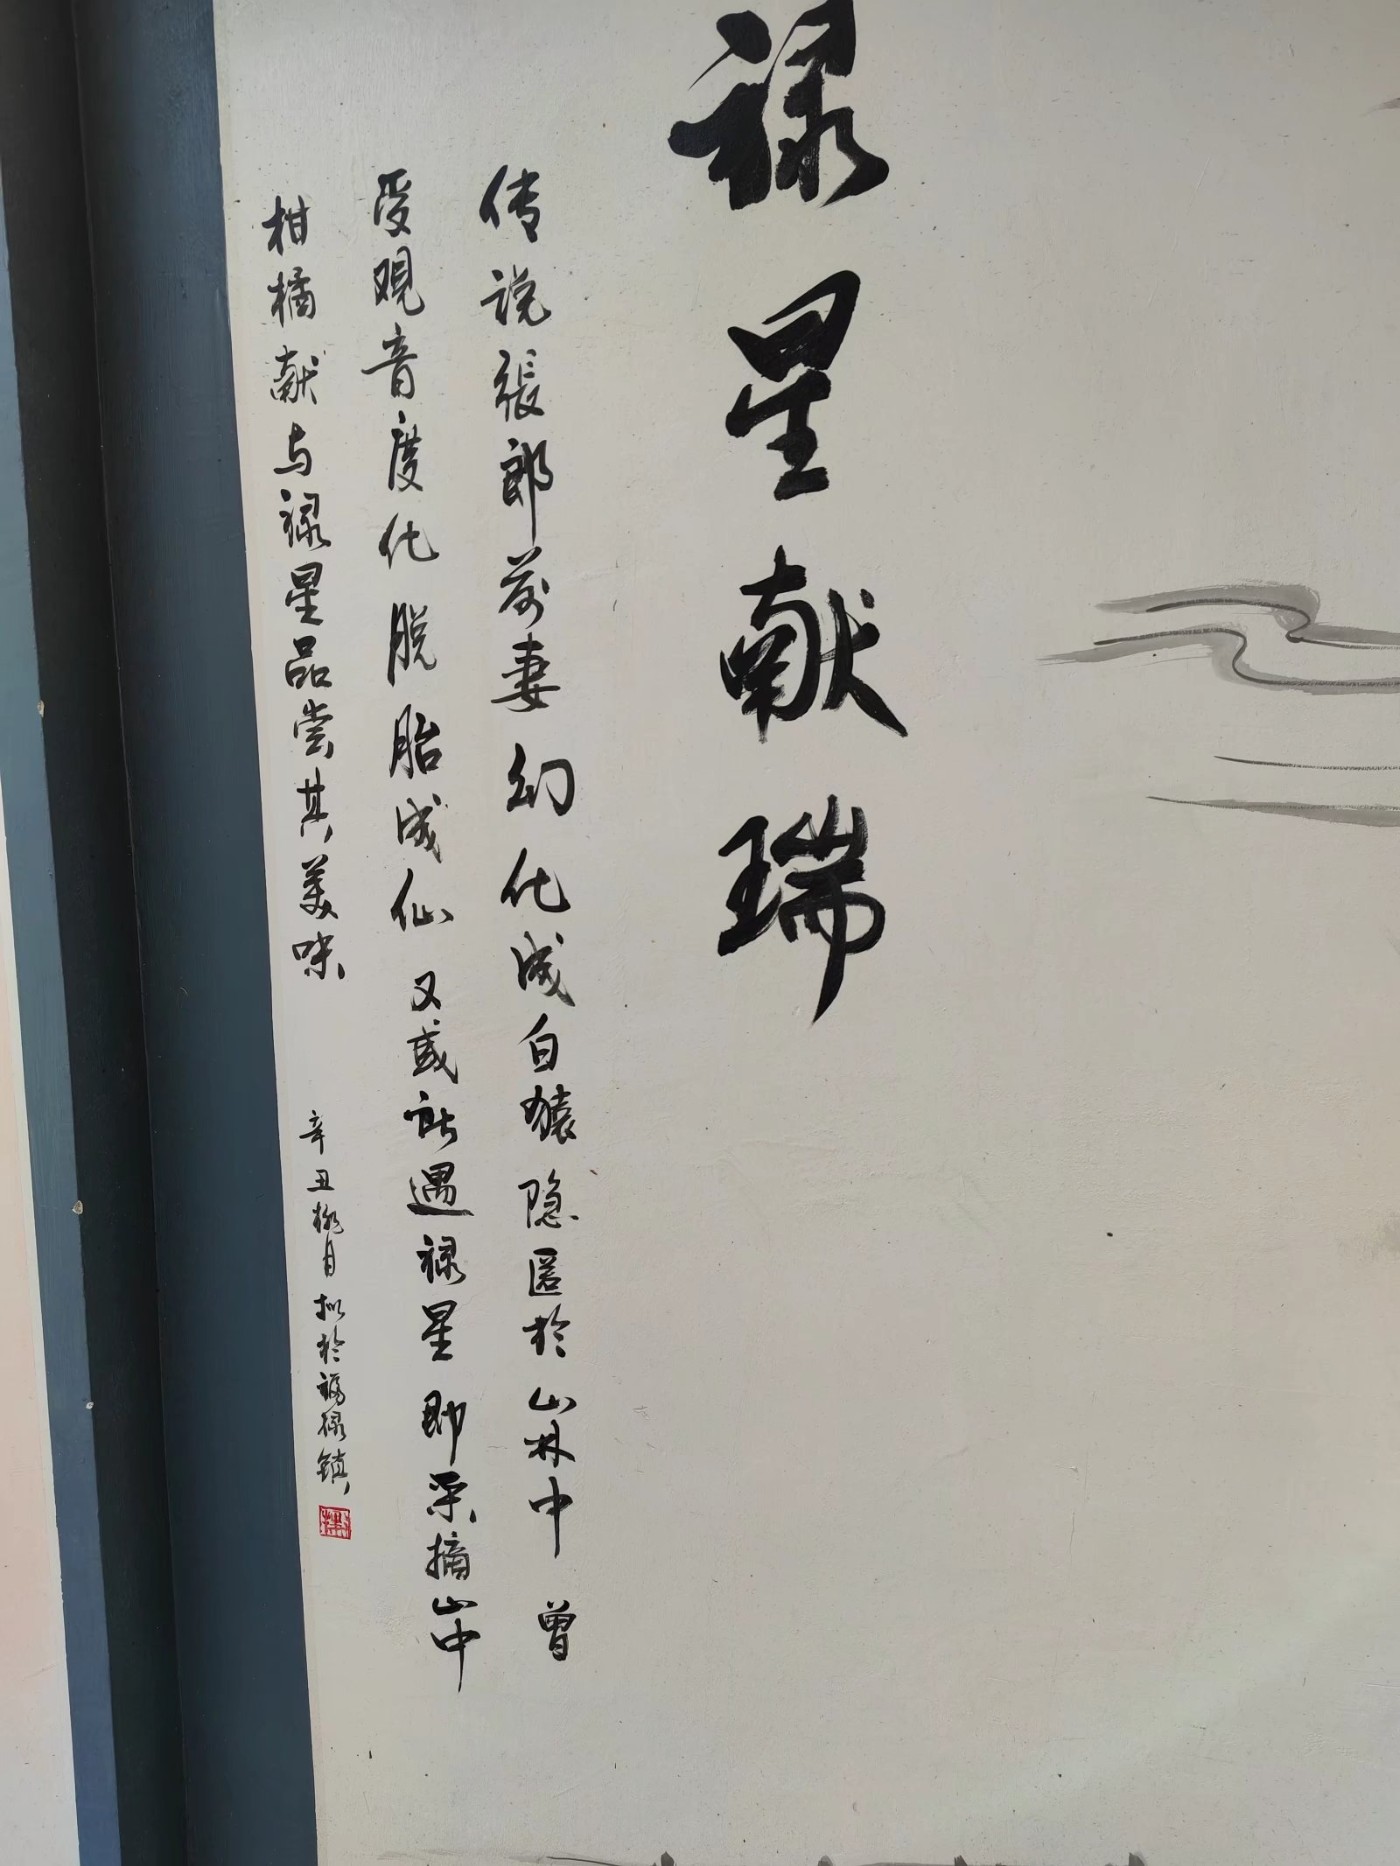 禄星献瑞
传说張郎前妻幻化成白猿隐匿於山林中 曾
受观音度化脱胎成仙 又或许遇禄星即采摘山中
柑橘献与禄星品尝其美味
辛丑桃月拟於福禄镇